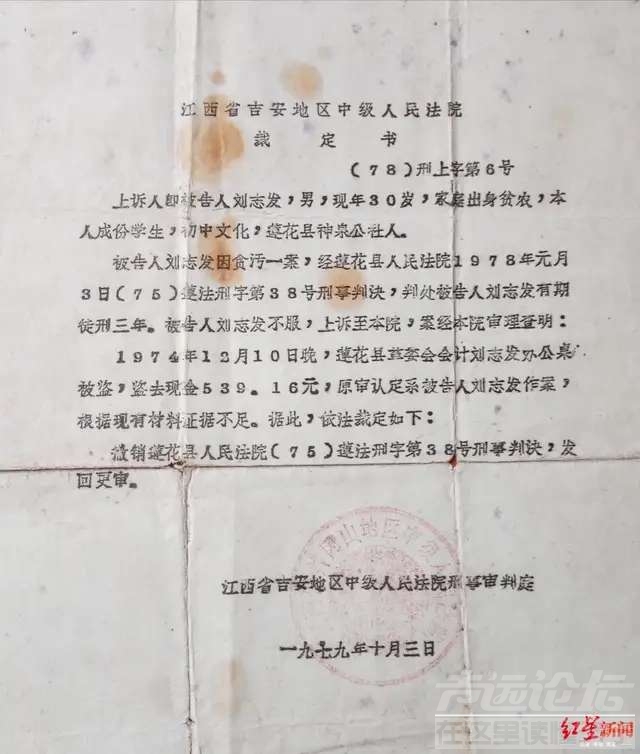 江西省吉安地区中级人民法院
裁定书
(78)刑上字第6号
上诉人即被告人刘志发,男,现年30岁,家庭出身贫农,本
人成份学生,初中文化,莲花县神泉公社人。
被告人刘志发因贪污一案,经莲花县人民法院1978年元月
3日(75)莲法刑字第38号刑事判决,判处被告人刘志发有期
徒刑三年。被告人刘志发不服,上诉至本院,案经本院审理查明:
1974年12月10日晚,莲花县革委会会计刘志发办公桌
被盗,盗去现金539.16元,原审认定系被告人刘志发作案,
根据现有材料证据不足。据此,依法裁定如下:
撤销莲花县人民法院(75)莲法刑字第38号刑事判决,发
回更审。
江西省吉安地区中级人民法院刑事审判庭
一九七九年十月三日
声远论坛
在这里读
红星新闻